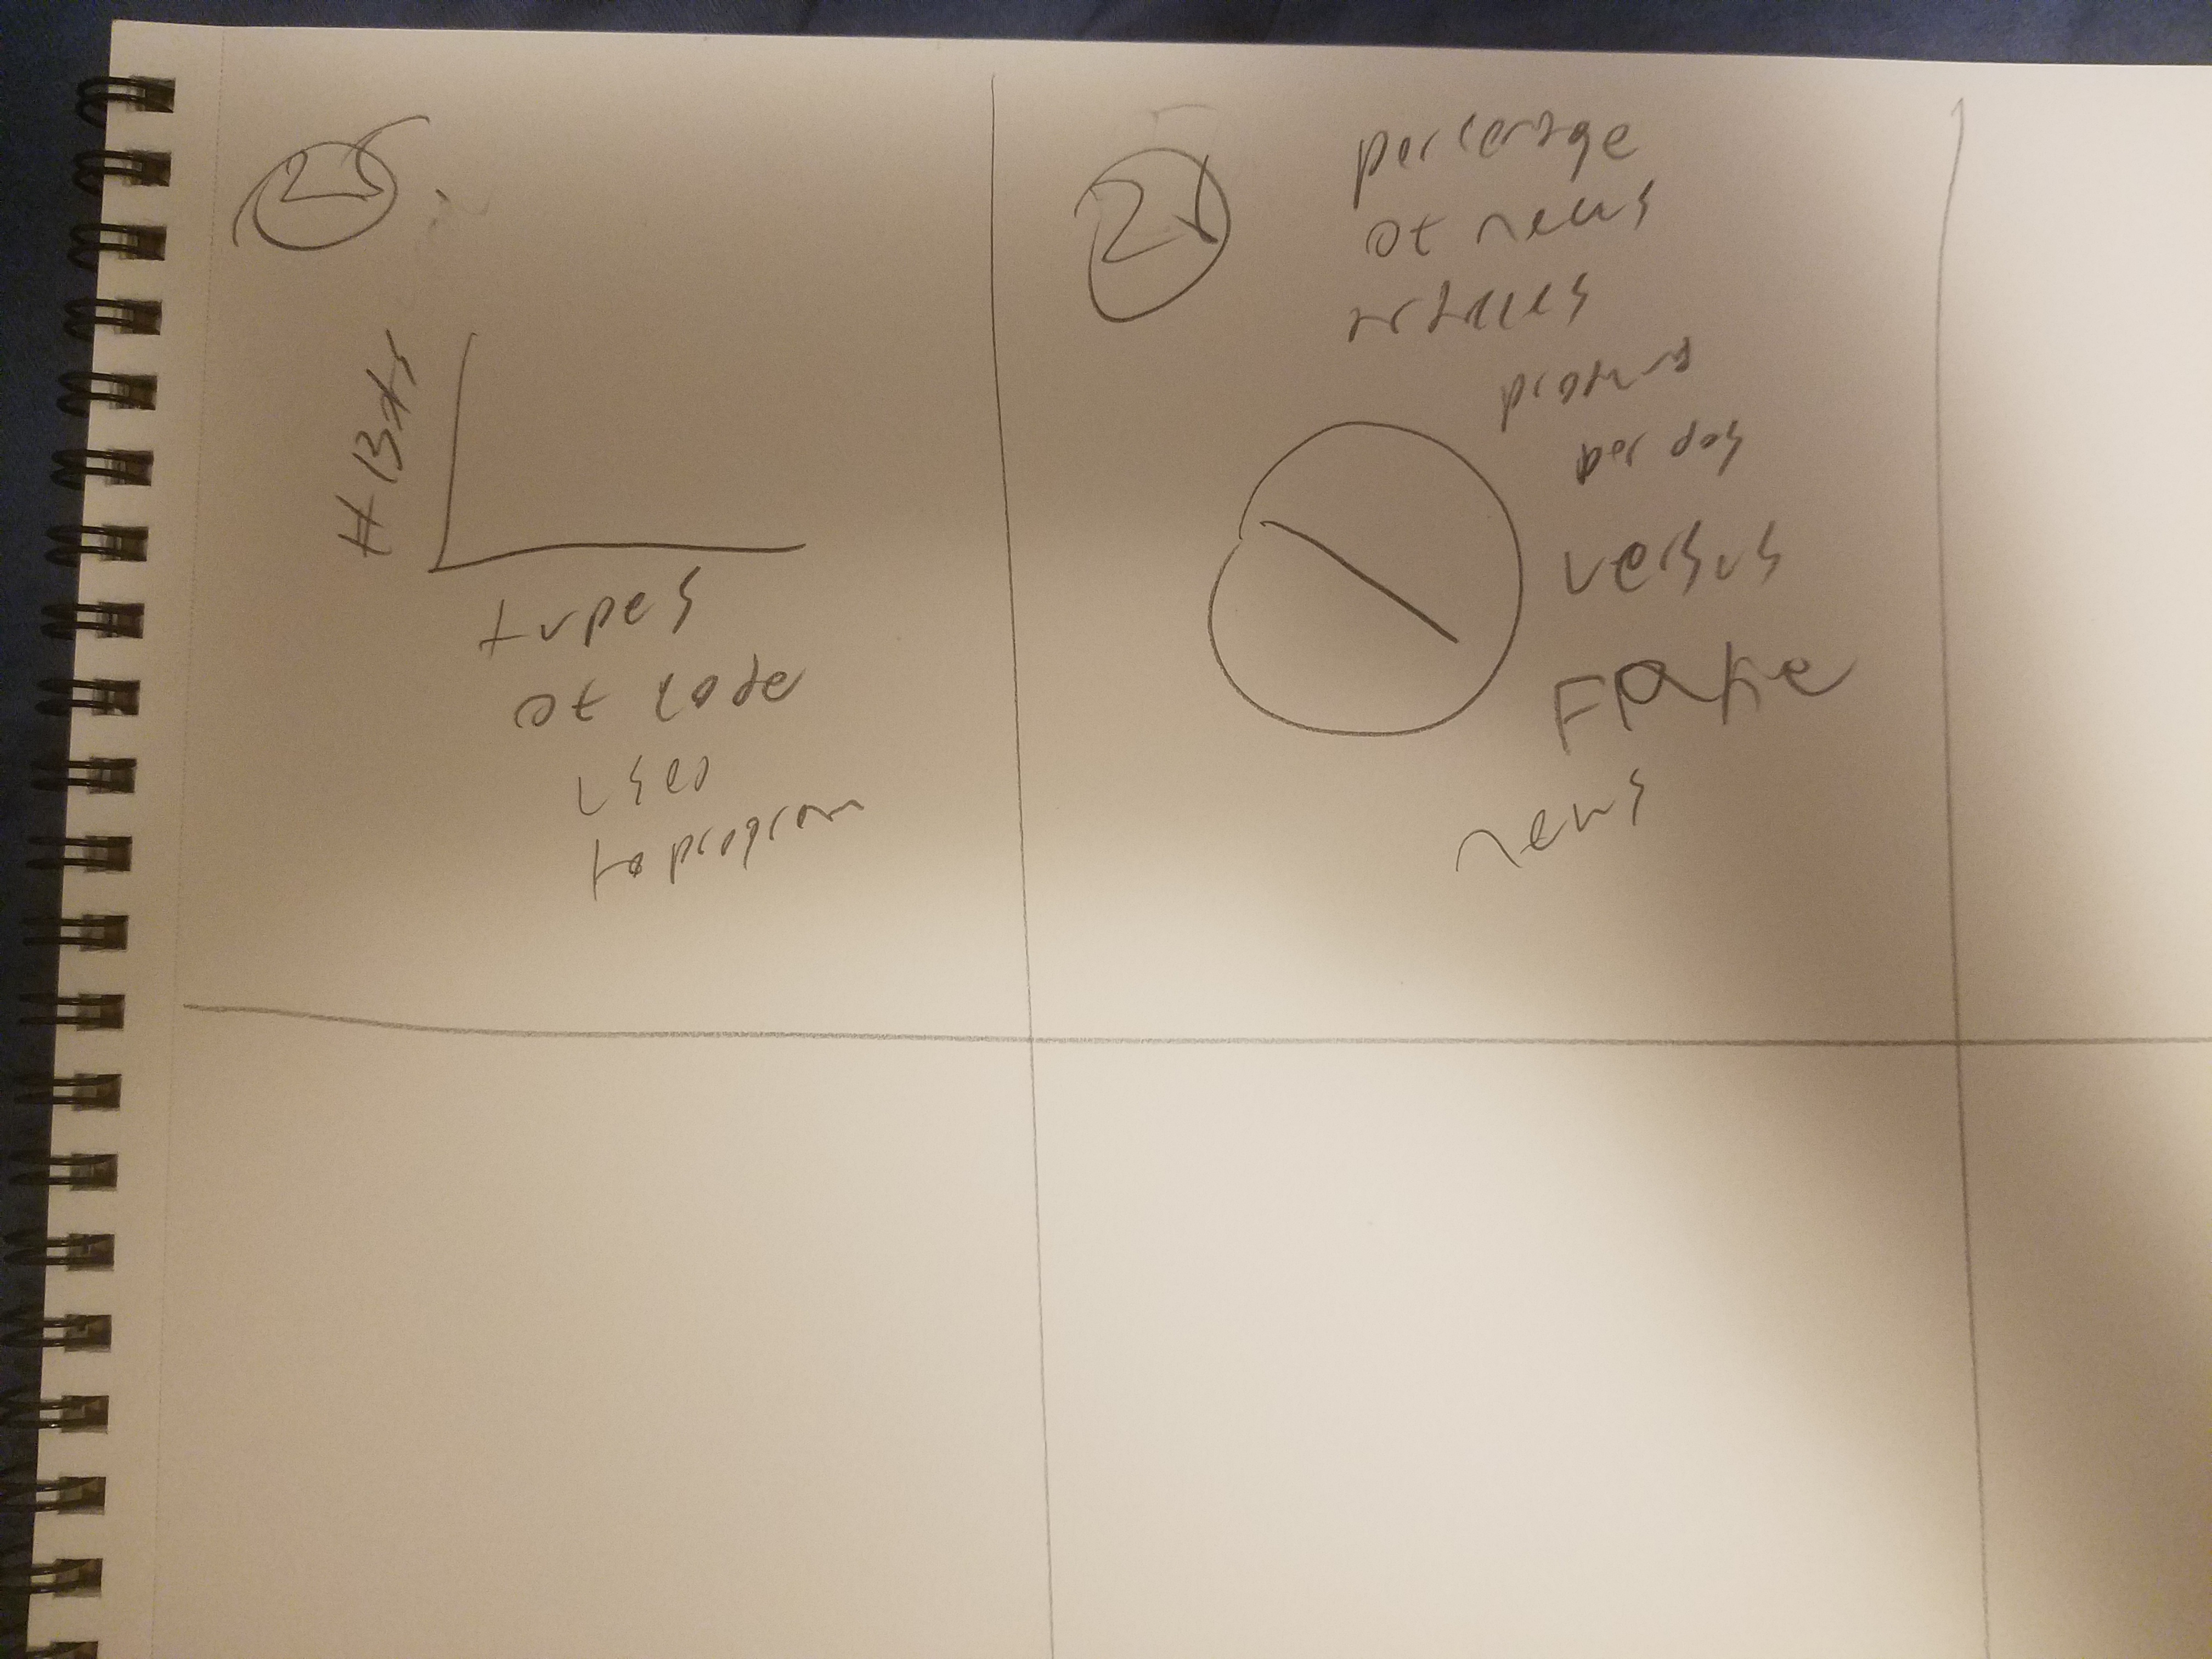 25
# Bots
types
of code
used
to program
21
percentage
of news
articles
per day
versus
Fake
news